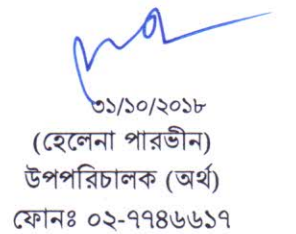 ৩১/১০/২০১৮
(হেলেনা পারভীন)
উপপরিচালক (অর্থ)
ফোনঃ ০২-৭৭৪৬৬১৭